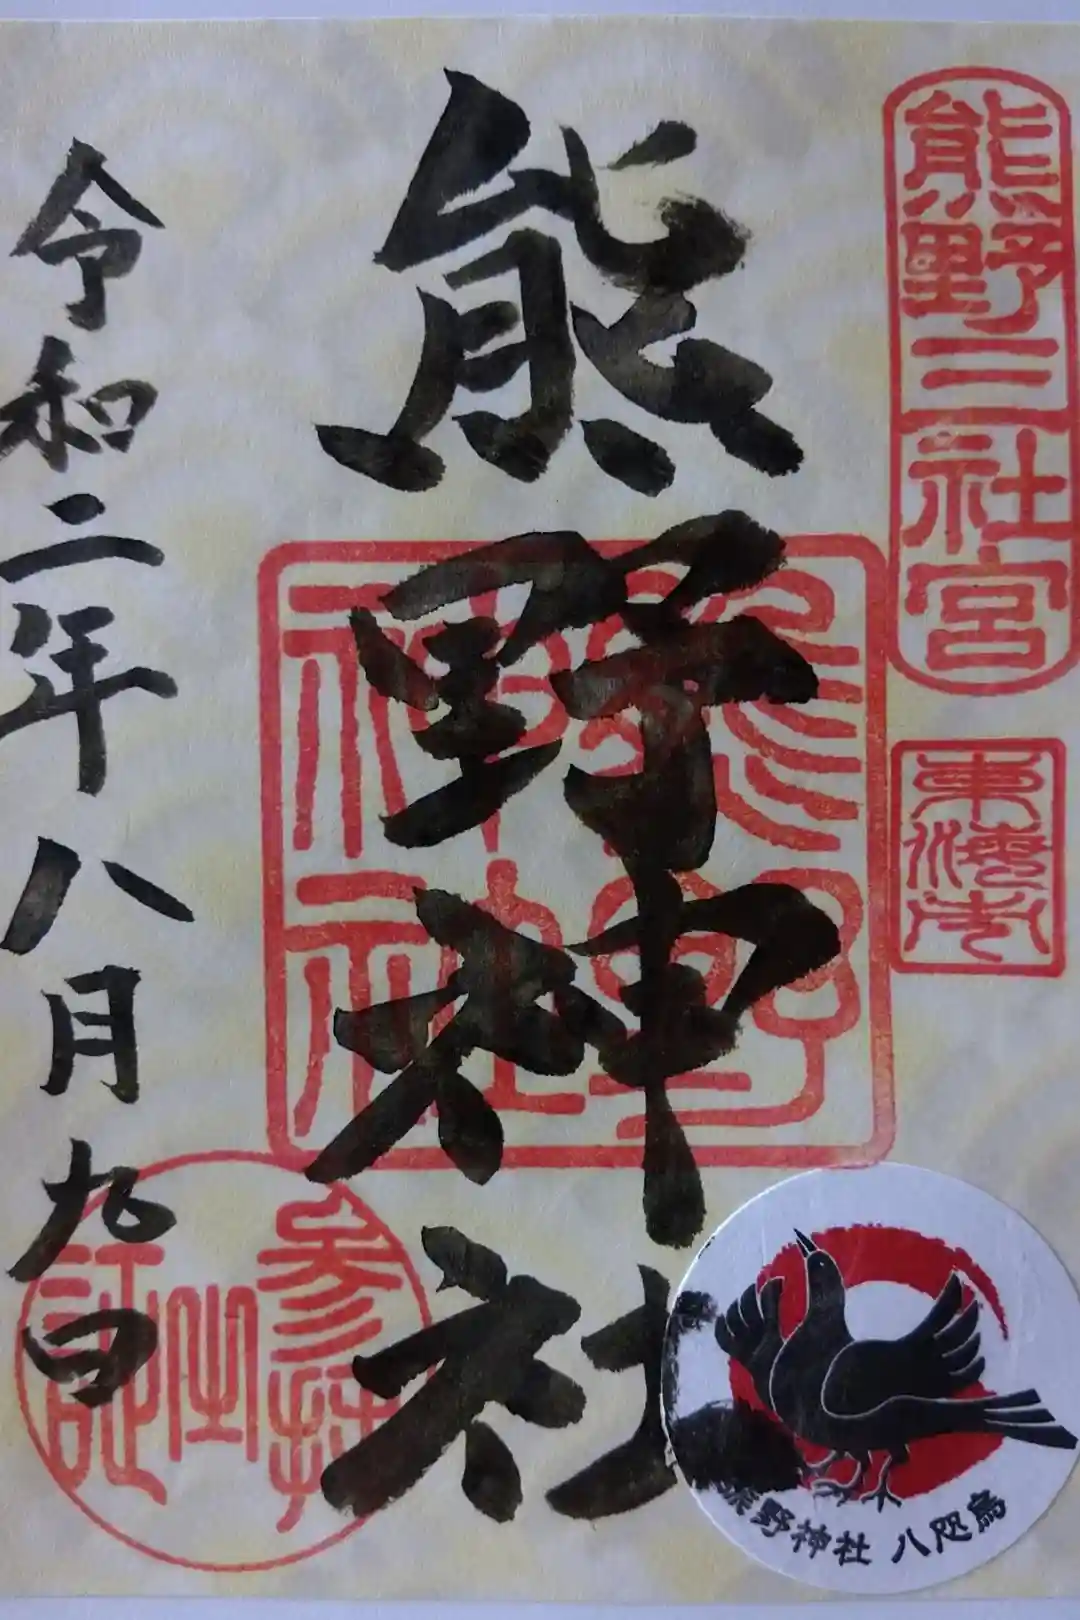 熊野三社宮
東海市
熊野神社
熊野神社
令和二年八月九日
参拝之証
熊野神社 八咫烏